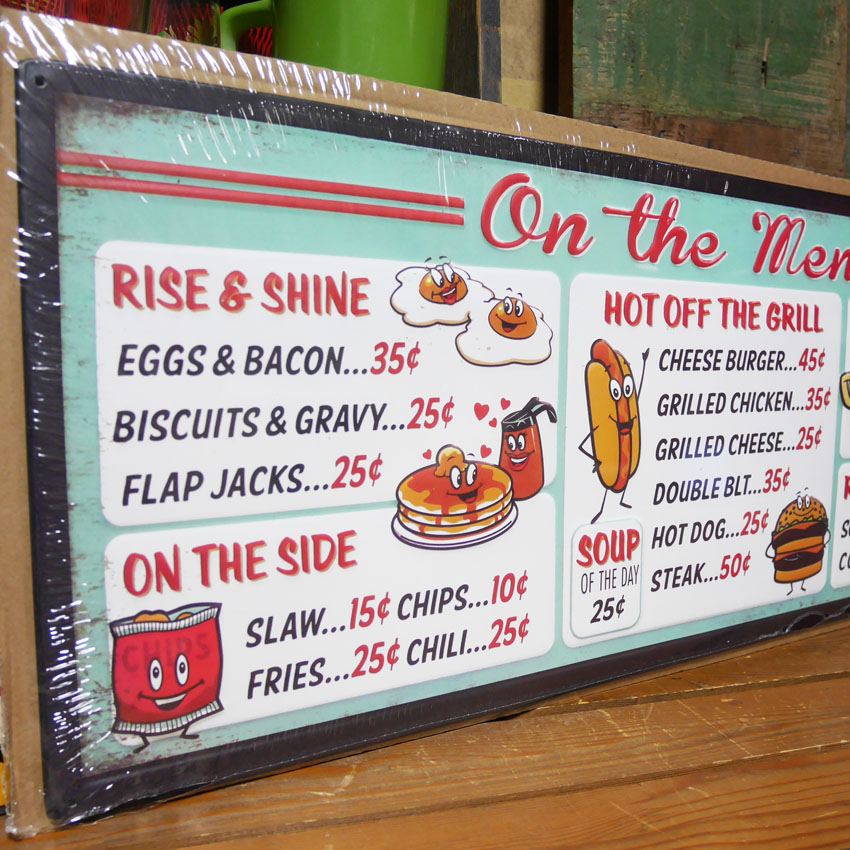 On the Men
RISE & SHINE
EGGS & BACON...35¢
BISCUITS & GRAVY...25¢
FLAP JACKS...25¢
ON THE SIDE
CHIPS
SLAW...15¢ CHIPS...10¢
FRIES...25¢ CHILI...25¢
HOT OFF THE GRILL
CHEESE BURGER...45¢
GRILLED CHICKEN...35¢
GRILLED CHEESE...25¢
DOUBLE BLT...35¢
HOT DOG...25¢
STEAK...50¢
SOUP
OF THE DAY
25¢